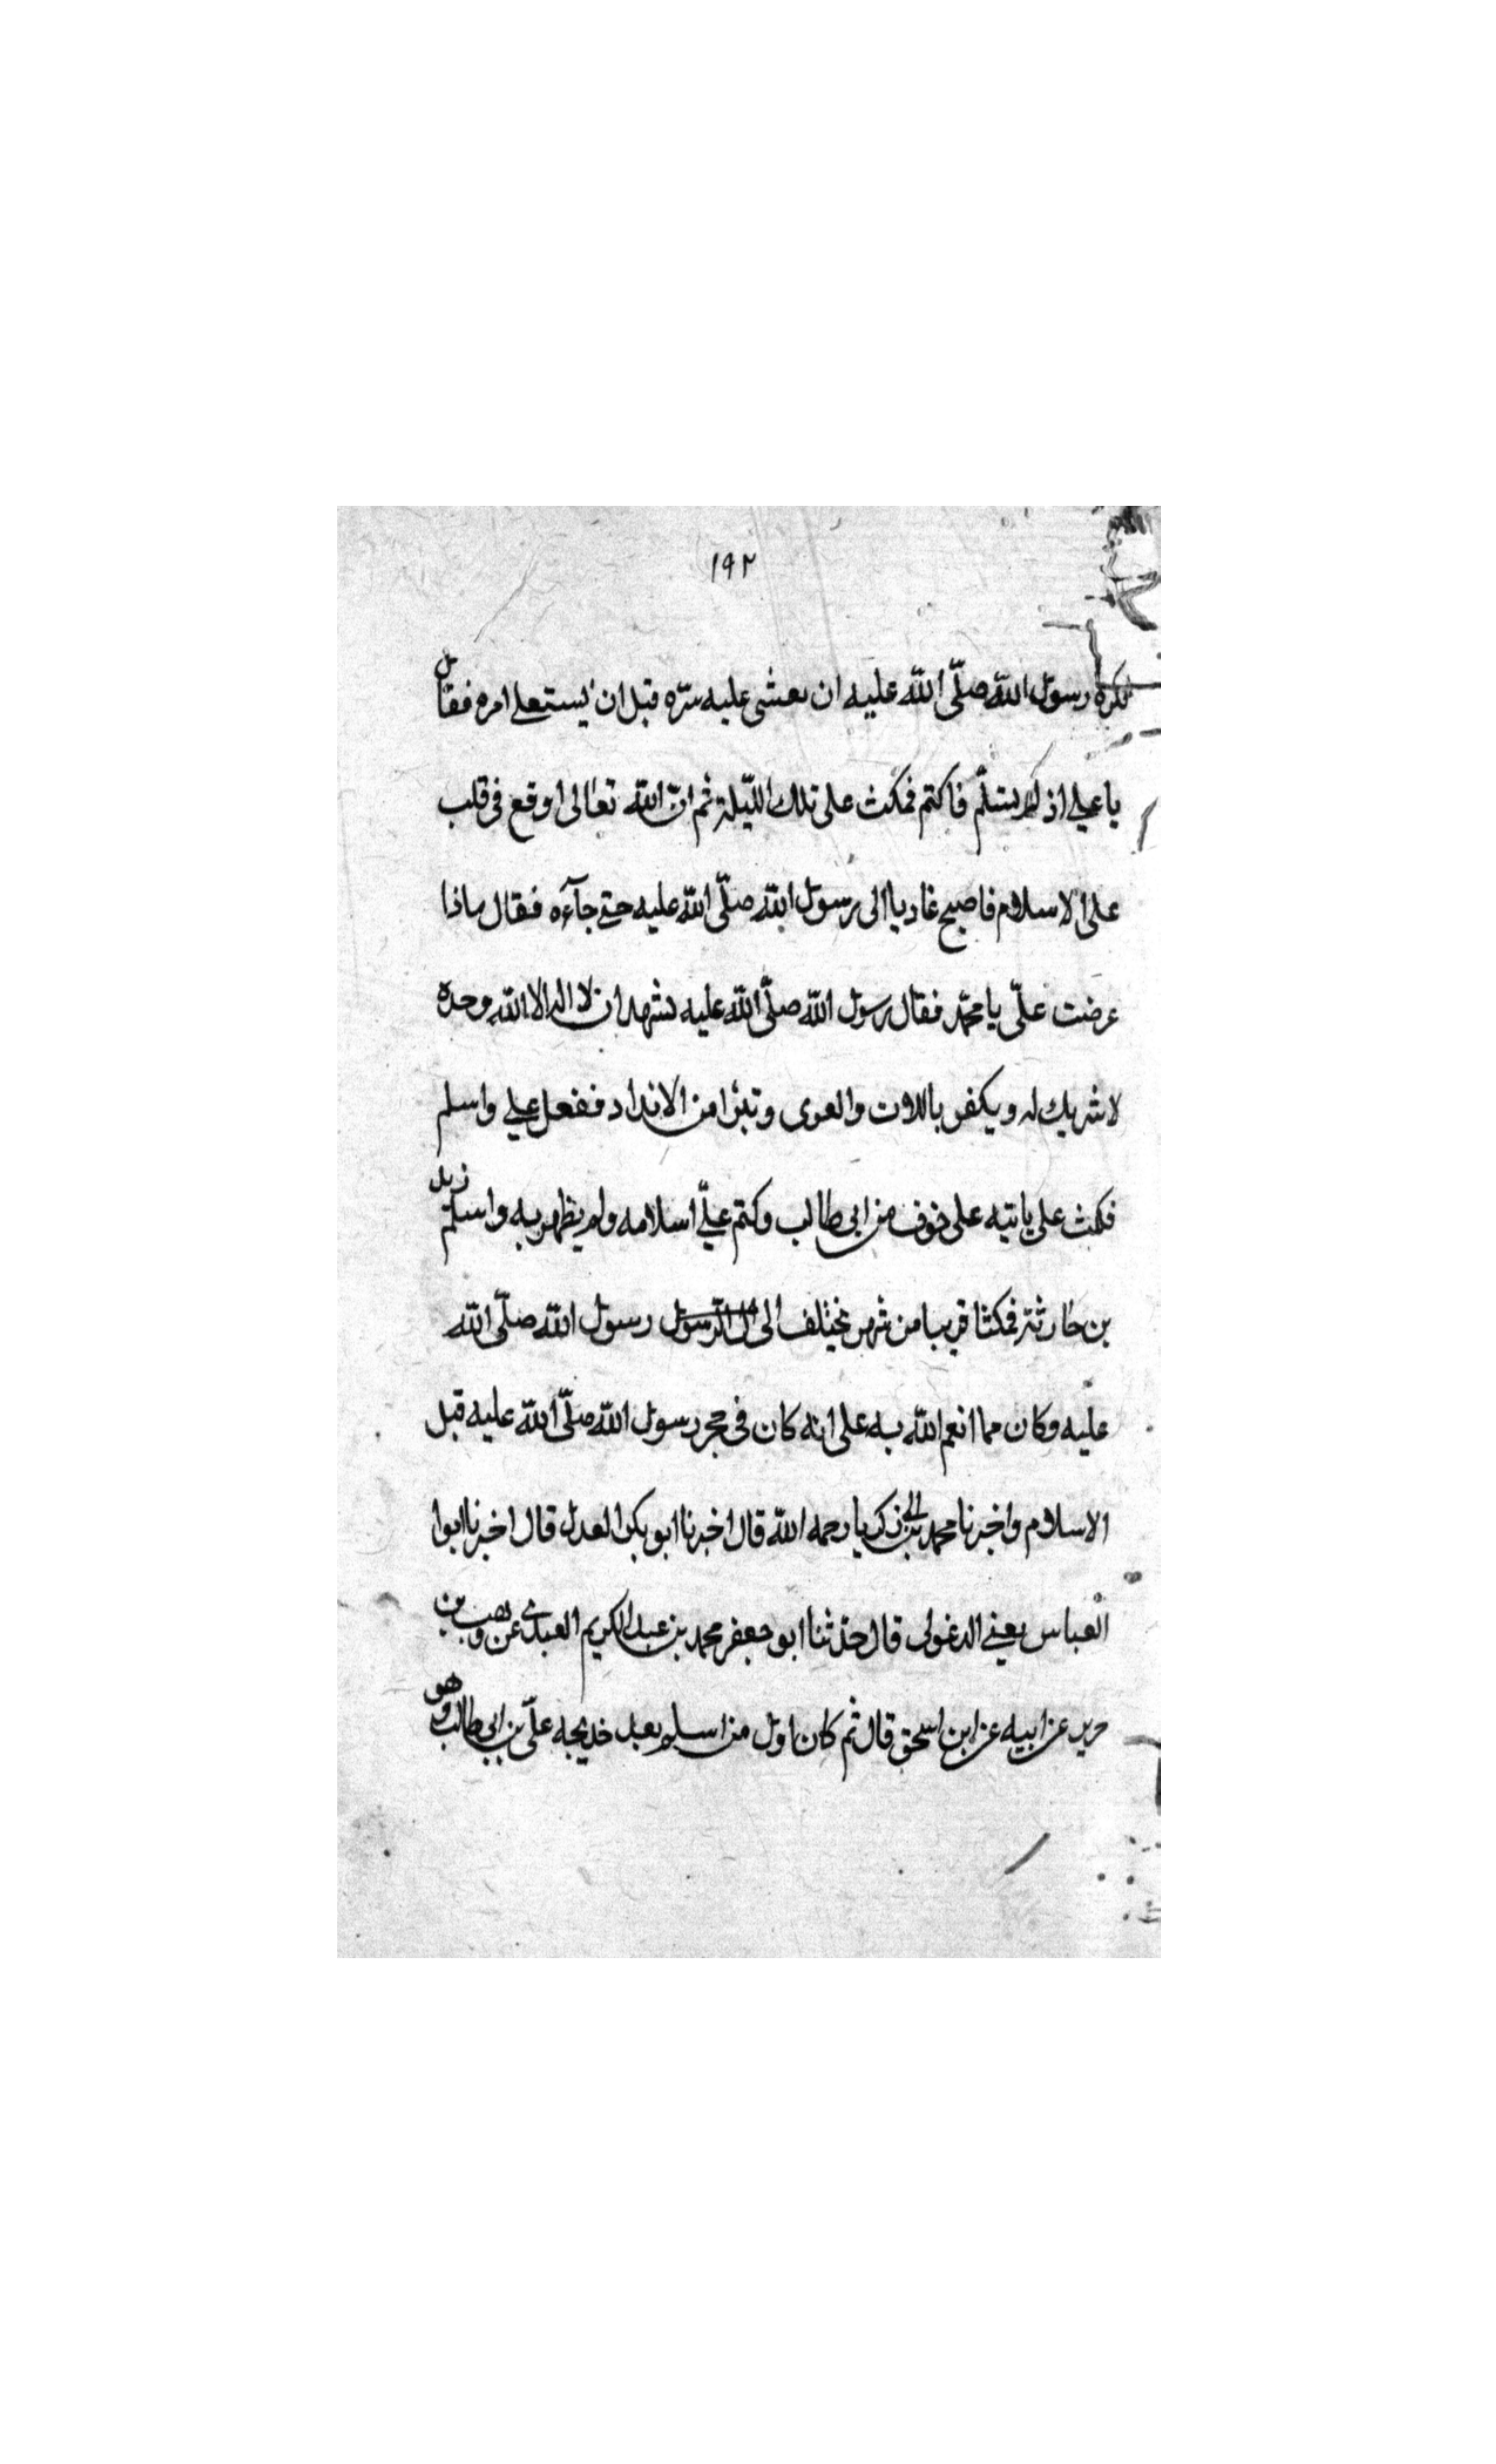 ١٩٢
فكره رسول الله صلّى الله عليه ان يعشى عليه سرّه قبل ان يستعلى امره فقال
يا على اذ لم تسلّم فاكتم فمكث على تلك اللّيلة ثم انّ الله تعالى اوقع فى قلب
على الاسلام فاصبح غاديا الى رسول الله صلّى الله عليه حتى جآءه فقال ماذا
عرضت علّى يا محمّد فقال رسول الله صلّى الله عليه تشهد ان لا اله الا الله وحده
لا شريك له ويكفر باللات والعزى وتبرّا من الانداد ففعل على واسلم
فمكث على ياتيه على خوف من ابى طالب وكتم علىّ اسلامه ولم يظهر به واسلم زيد
بن حارثة فمكثا قريبا من شهر يختلف الى رسول الله صلّى الله
عليه وكان مما انعم الله به على انه كان فى حجر رسول الله صلّى الله عليه قبل
الاسلام واخبرنا محمد بن ابى زكريا رحمه الله قال اخبرنا ابو بكر العدل قال اخبرنا ابوا
العباس يعنى الدغولى قال حدّثنا ابو جعفر محمد بن عبد الكريم العبدى عن وهب بن
جرير عن ابيه عن ابن اسحق قال ثم كان اول من اسلم بعد خديجه علىّ بن ابى طالب وهو